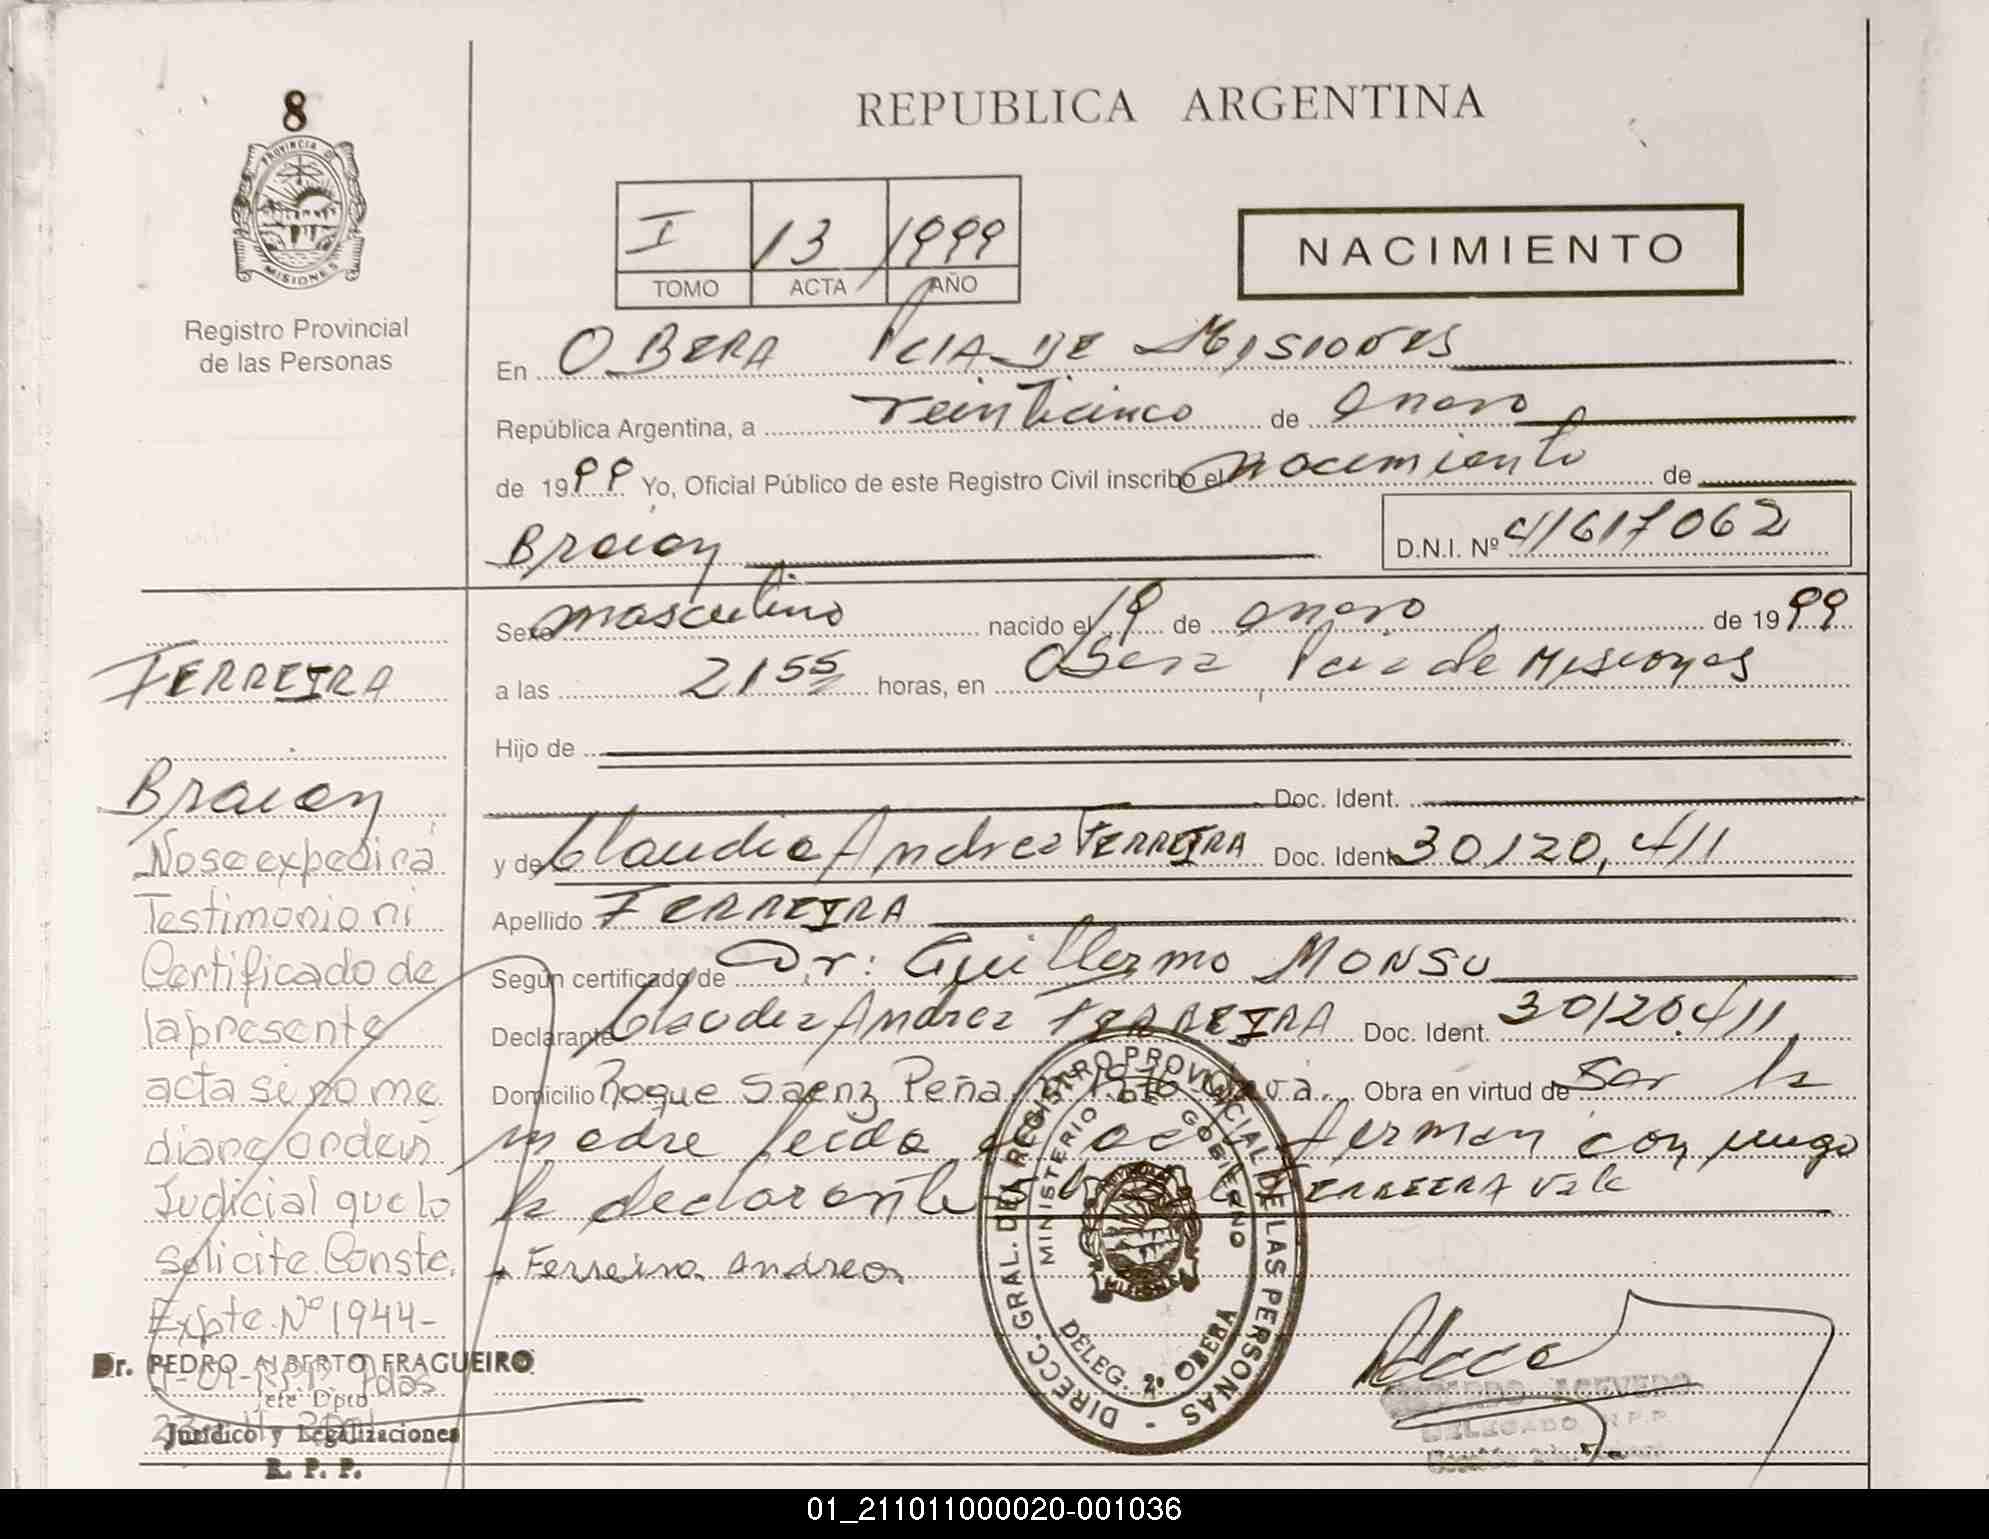 8
PROVINCIA D
MISIONES
Registro Provincial
de las Personas
REPUBLICA ARGENTINA
I 13 1999
TOMO ACTA AÑO
NACIMIENTO
En OBERA Pcia DE MISIONES
República Argentina, a veinticinco de enero
de 1999 Yo, Oficial Público de este Registro Civil inscribo el nacimiento de
Braian
D.N.I. Nº 41617062
Sexo masculino nacido el 19 de enero de 1999
a las 21 55 horas, en Obera Pcia de Misiones
Hijo de
Doc. Ident.
y de Claudia Andrea FERREIRA Doc. Ident. 30120,411
Apellido FERREIRA
Según certificado de Dr: Guillermo MONSU
Declarante Claudia Andrea FERREIRA Doc. Ident. 30120.411
Domicilio Roque Saenz Peña Obra en virtud de ser la
madre leida el firman con migo
la declarante FERREIRA vale
Ferreira Andrea
FERREIRA
Braian
No se expedirá
Testimonio ni
Certificado de
la presente
acta si no me
diare orden
Judicial que lo
Solicite. Conste.
Expte. Nº 1944-
Dr. PEDRO ALBERTO FRAGUEIRO
Jefe Dpto
Jurídico y Legalizaciones
R. P. P.
DIRECC. GRAL. DEL REGISTRO PROVINCIAL DE LAS PERSONAS -
MINISTERIO DE GOBIERNO
DELEG. 2º OBERA
ACEVEDO
DELEGADO R.P.P.
01_211011000020-001036